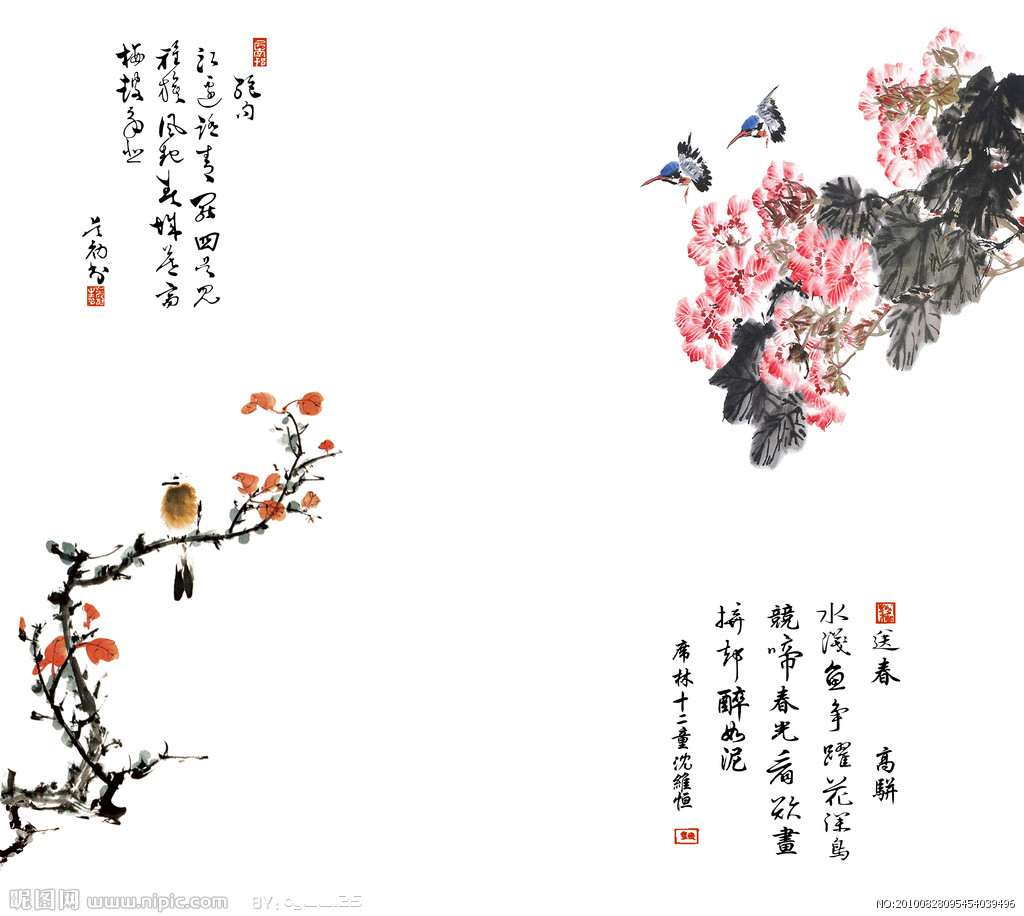 絕句
江邊踏青罷回首見
旌旗風起春城暮高
樓鼓角悲
送春 高駢
水淺魚争躍花深鳥
競啼春光看欲盡
拚却醉如泥
席林十二童沈維恒
昵图网 www.nipic.com BY:
NO:20100828095454039496